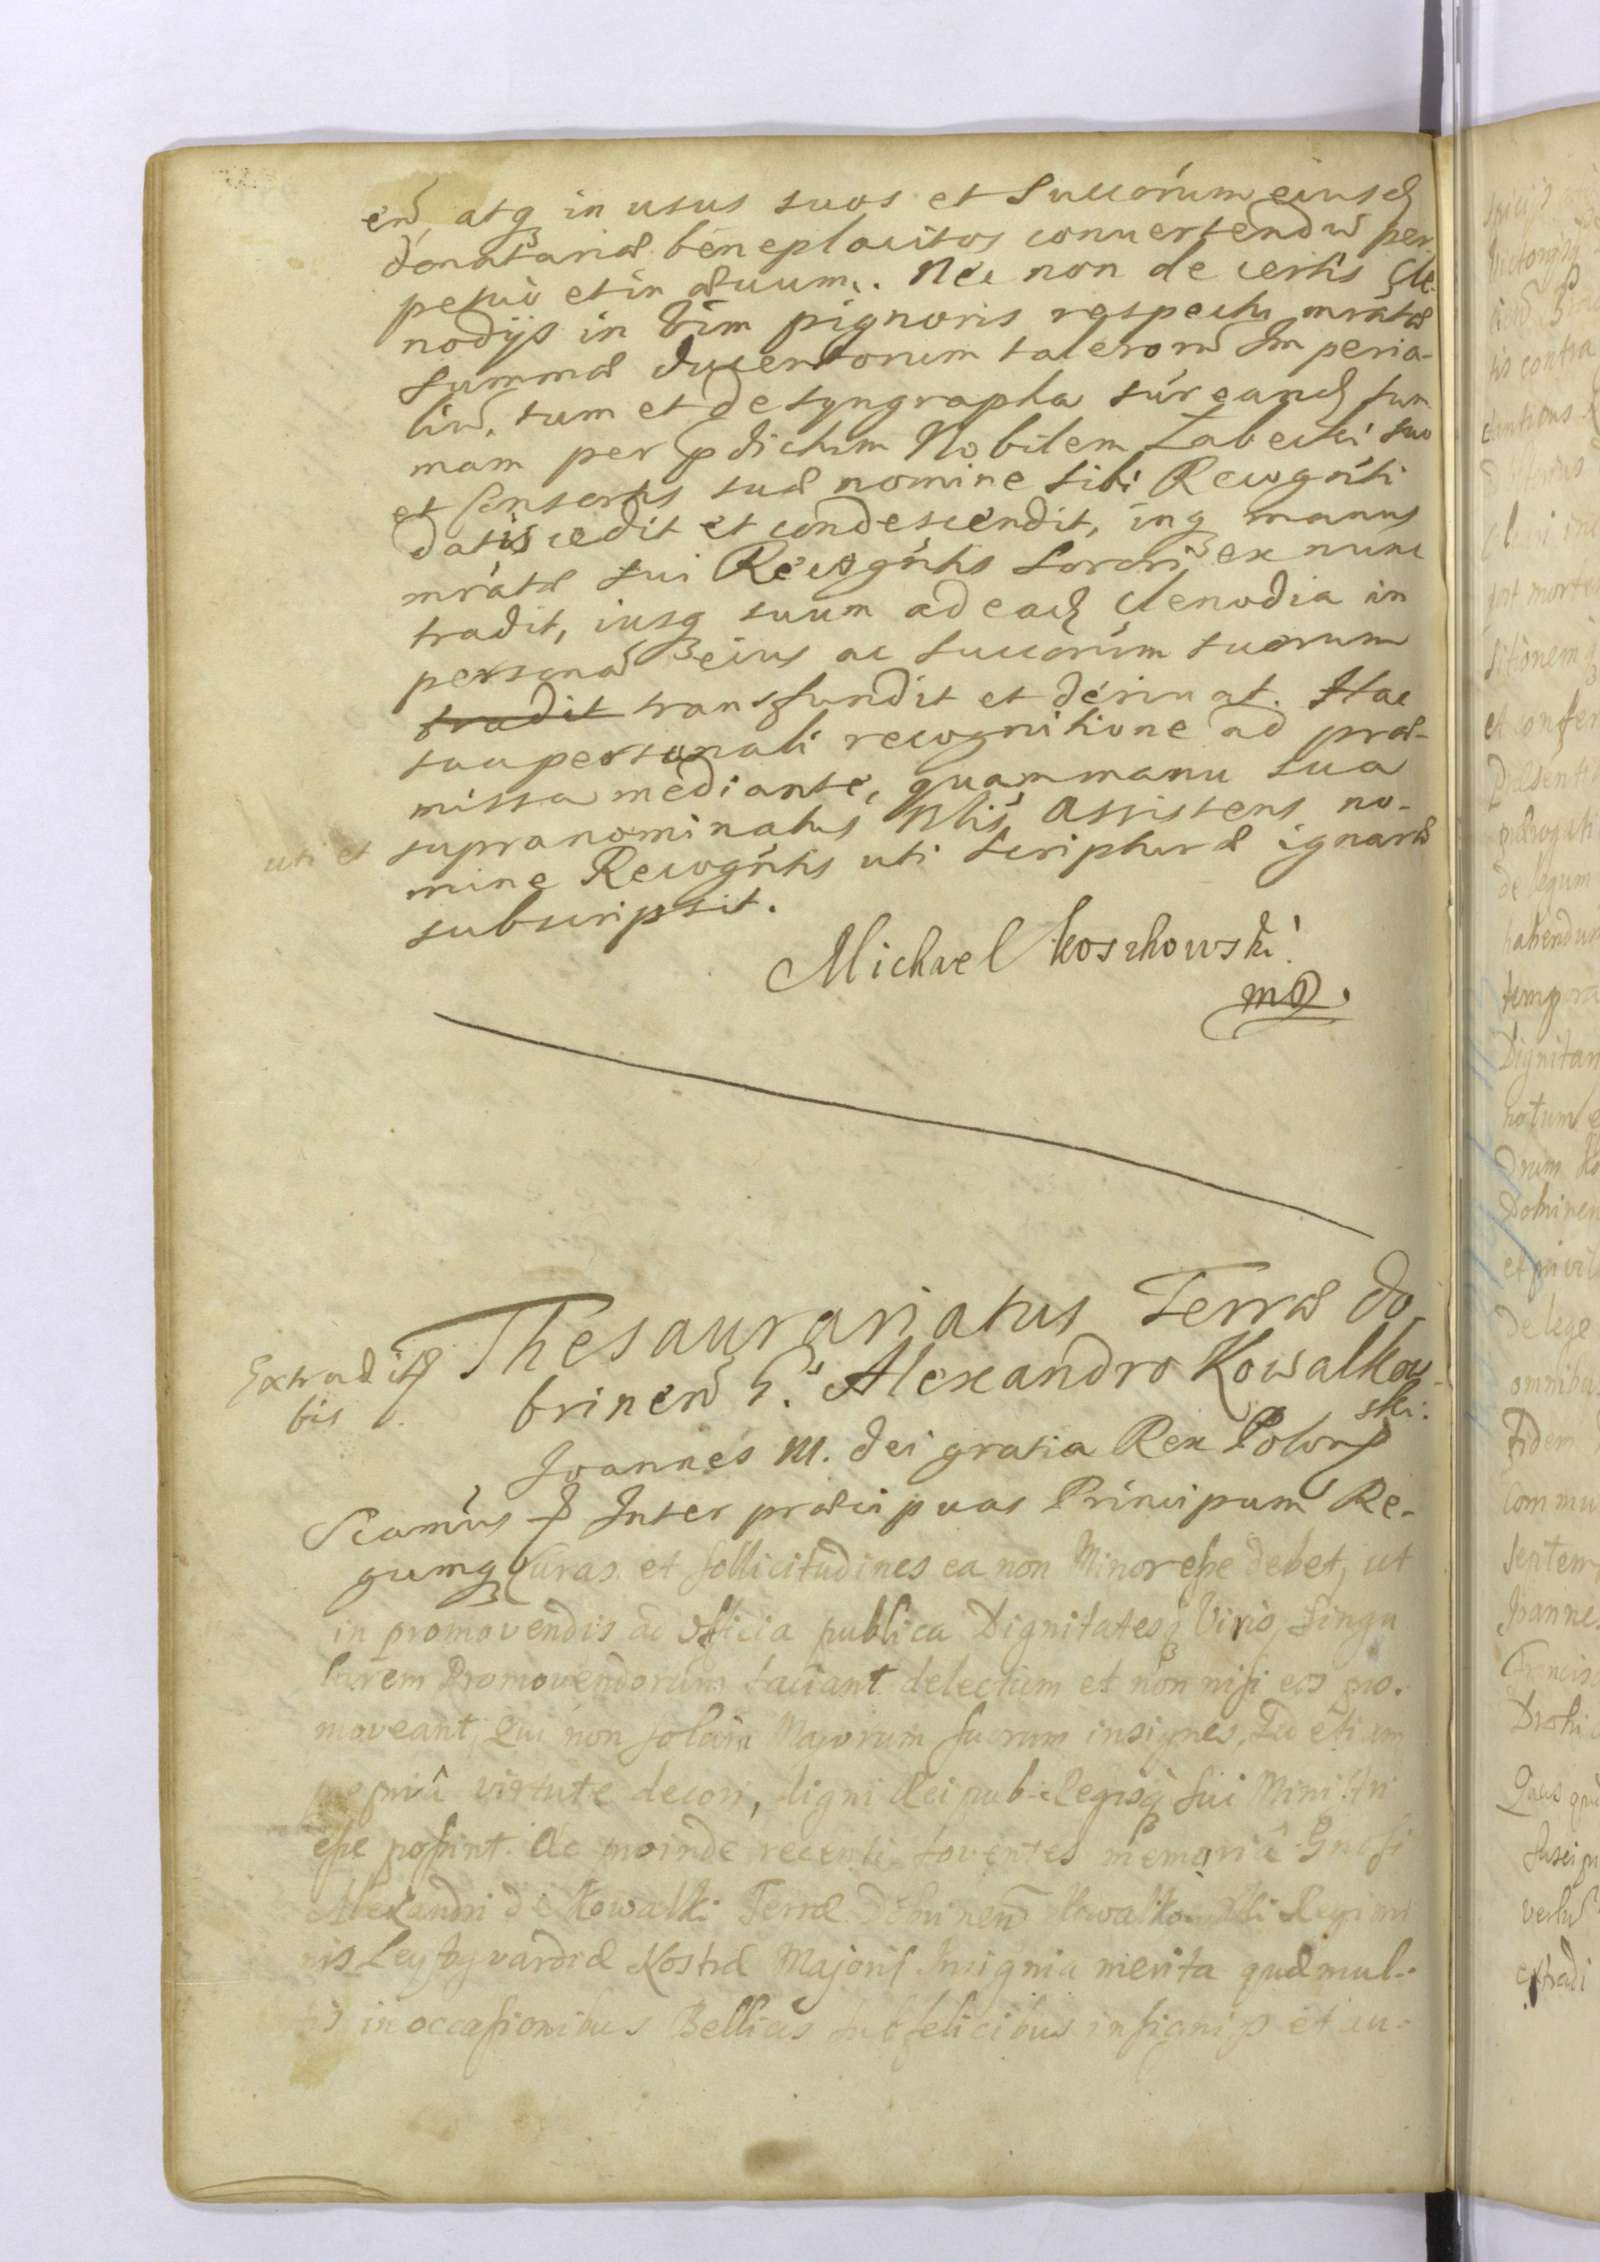 end, atq in usus suos et Succorum eiusd
donatariæ beneplacitos convertendis per-
petuo et in ævum. Nec non de certis Cle-
nodijs in vim pignoris respectu mratæ
Summæ ducentorum talerorum Im peria-
lium, tum et de syngrapha sur eand sum
mam per prdictum Nobilem Zabecki suo
et Consortis suæ nomine sibi Recognti
datis cedit et condescendit, inq manus
mratæ sui Recogntis Sororis ex nunc
tradit, iusq suum ad ead Clenodia in
personam eius ac Succorum suorum
tradit transfundit et derivat. Hac
sua personali recognitione ad præ-
missa mediante, quam manu sua
uti et supranominatus Nlis Assistens no-
mine Recogntis uti Scripturæ ignaræ
subscripsit.
Michael Koszkowski
mp.
Extradit
bis
Thesaurariatus Terræ Do-
brinen G. Alexandro Kowalkow-
ski.
Joannes III. Dei gratia Rex Polon
Scamus Inter præcipuas Principum Re-
gumq Curas et sollicitudines ea non Minor esse debet, ut
in promovendis ad officia publica Dignitatesq Viris, Singu
larem Promovendorum faciant delectum et non nisi eos pro-
moveant, Qui non solum Majorum suorum insignes, sed etiam
propriâ virtute decori, digni Reipub. Regisq sui Ministri
esse possint. Ac proinde recenti foventes memoriâ Gnosi
Alexandri de Kowalki Terræ Dobrinen Kowalkowski Regimi
nis Leyb gvardiæ Nostræ Majoris Insignia merita quæ mul-
tis in occasionibus Bellicis insignis et au-